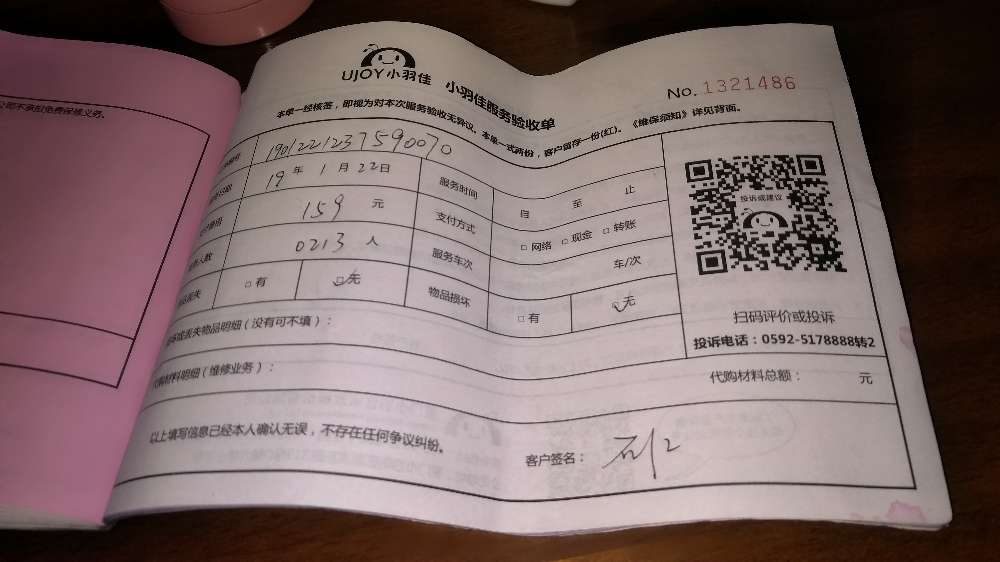 公司不承担免费保修义务。
UJOY小羽佳 小羽佳服务验收单
No. 1321486
本单一经核签，即视为对本次服务验收无异议。本单一式两份，客户留存一份(红)。《维保须知》详见背面。
1901221237590070
19 年 1 月 22 日 服务时间 自 至 止
159 元 支付方式 □ 网络 □ 现金 □ 转账
人数 0213 人 服务车次 车/次
物品丢失 □ 有 □ 无 物品损坏 □ 有 □ 无
投诉或建议
扫码评价或投诉
投诉电话：0592-5178888转2
损坏或丢失物品明细（没有可不填）：
代购材料明细（维修业务）： 代购材料总额： 元
以上填写信息已经本人确认无误，不存在任何争议纠纷。 客户签名：